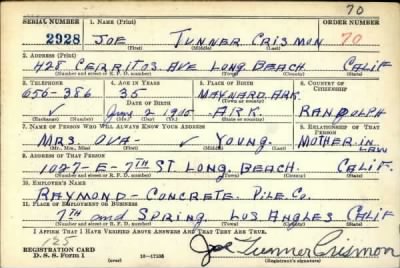 70
SERIAL NUMBER 1. NAME (Print) ORDER NUMBER
2928 JOE TUNNER CRISMON 70
(First) (Middle) (Last)
2. ADDRESS (Print)
428 CERRITOS AVE LONG BEACH CALIF
(Number and street or R. F. D. number) (Town) (County) (State)
3. TELEPHONE 4. AGE IN YEARS 5. PLACE OF BIRTH 6. COUNTRY OF CITIZENSHIP
656-386 35 MAYNARD ARK.
DATE OF BIRTH (Town or county)
June 2 1905 ARK. RANDOLPH
(Mo.) (Day) (Yr.) (State or country)
7. NAME OF PERSON WHO WILL ALWAYS KNOW YOUR ADDRESS 8. RELATIONSHIP OF THAT PERSON
MRS OVA - ✓ YOUNG. MOTHER IN LAW
(Mr., Mrs., Miss) (First) (Middle) (Last)
9. ADDRESS OF THAT PERSON
1027-E-7TH ST LONG BEACH. CALIF.
(Number and street or R. F. D. number) (Town) (County) (State)
10. EMPLOYER'S NAME
RAYMOND - CONCRETE PILE CO.
11. PLACE OF EMPLOYMENT OR BUSINESS
7TH and SPRING. LOS ANGLES CALIF
(Number and street or R. F. D. number) (Town) (County) (State)
I AFFIRM THAT I HAVE VERIFIED ABOVE ANSWERS AND THAT THEY ARE TRUE.
125
REGISTRATION CARD Joe Tunner Crismon
D. S. S. Form 1 (over) 16-17105 (Registrant's signature)